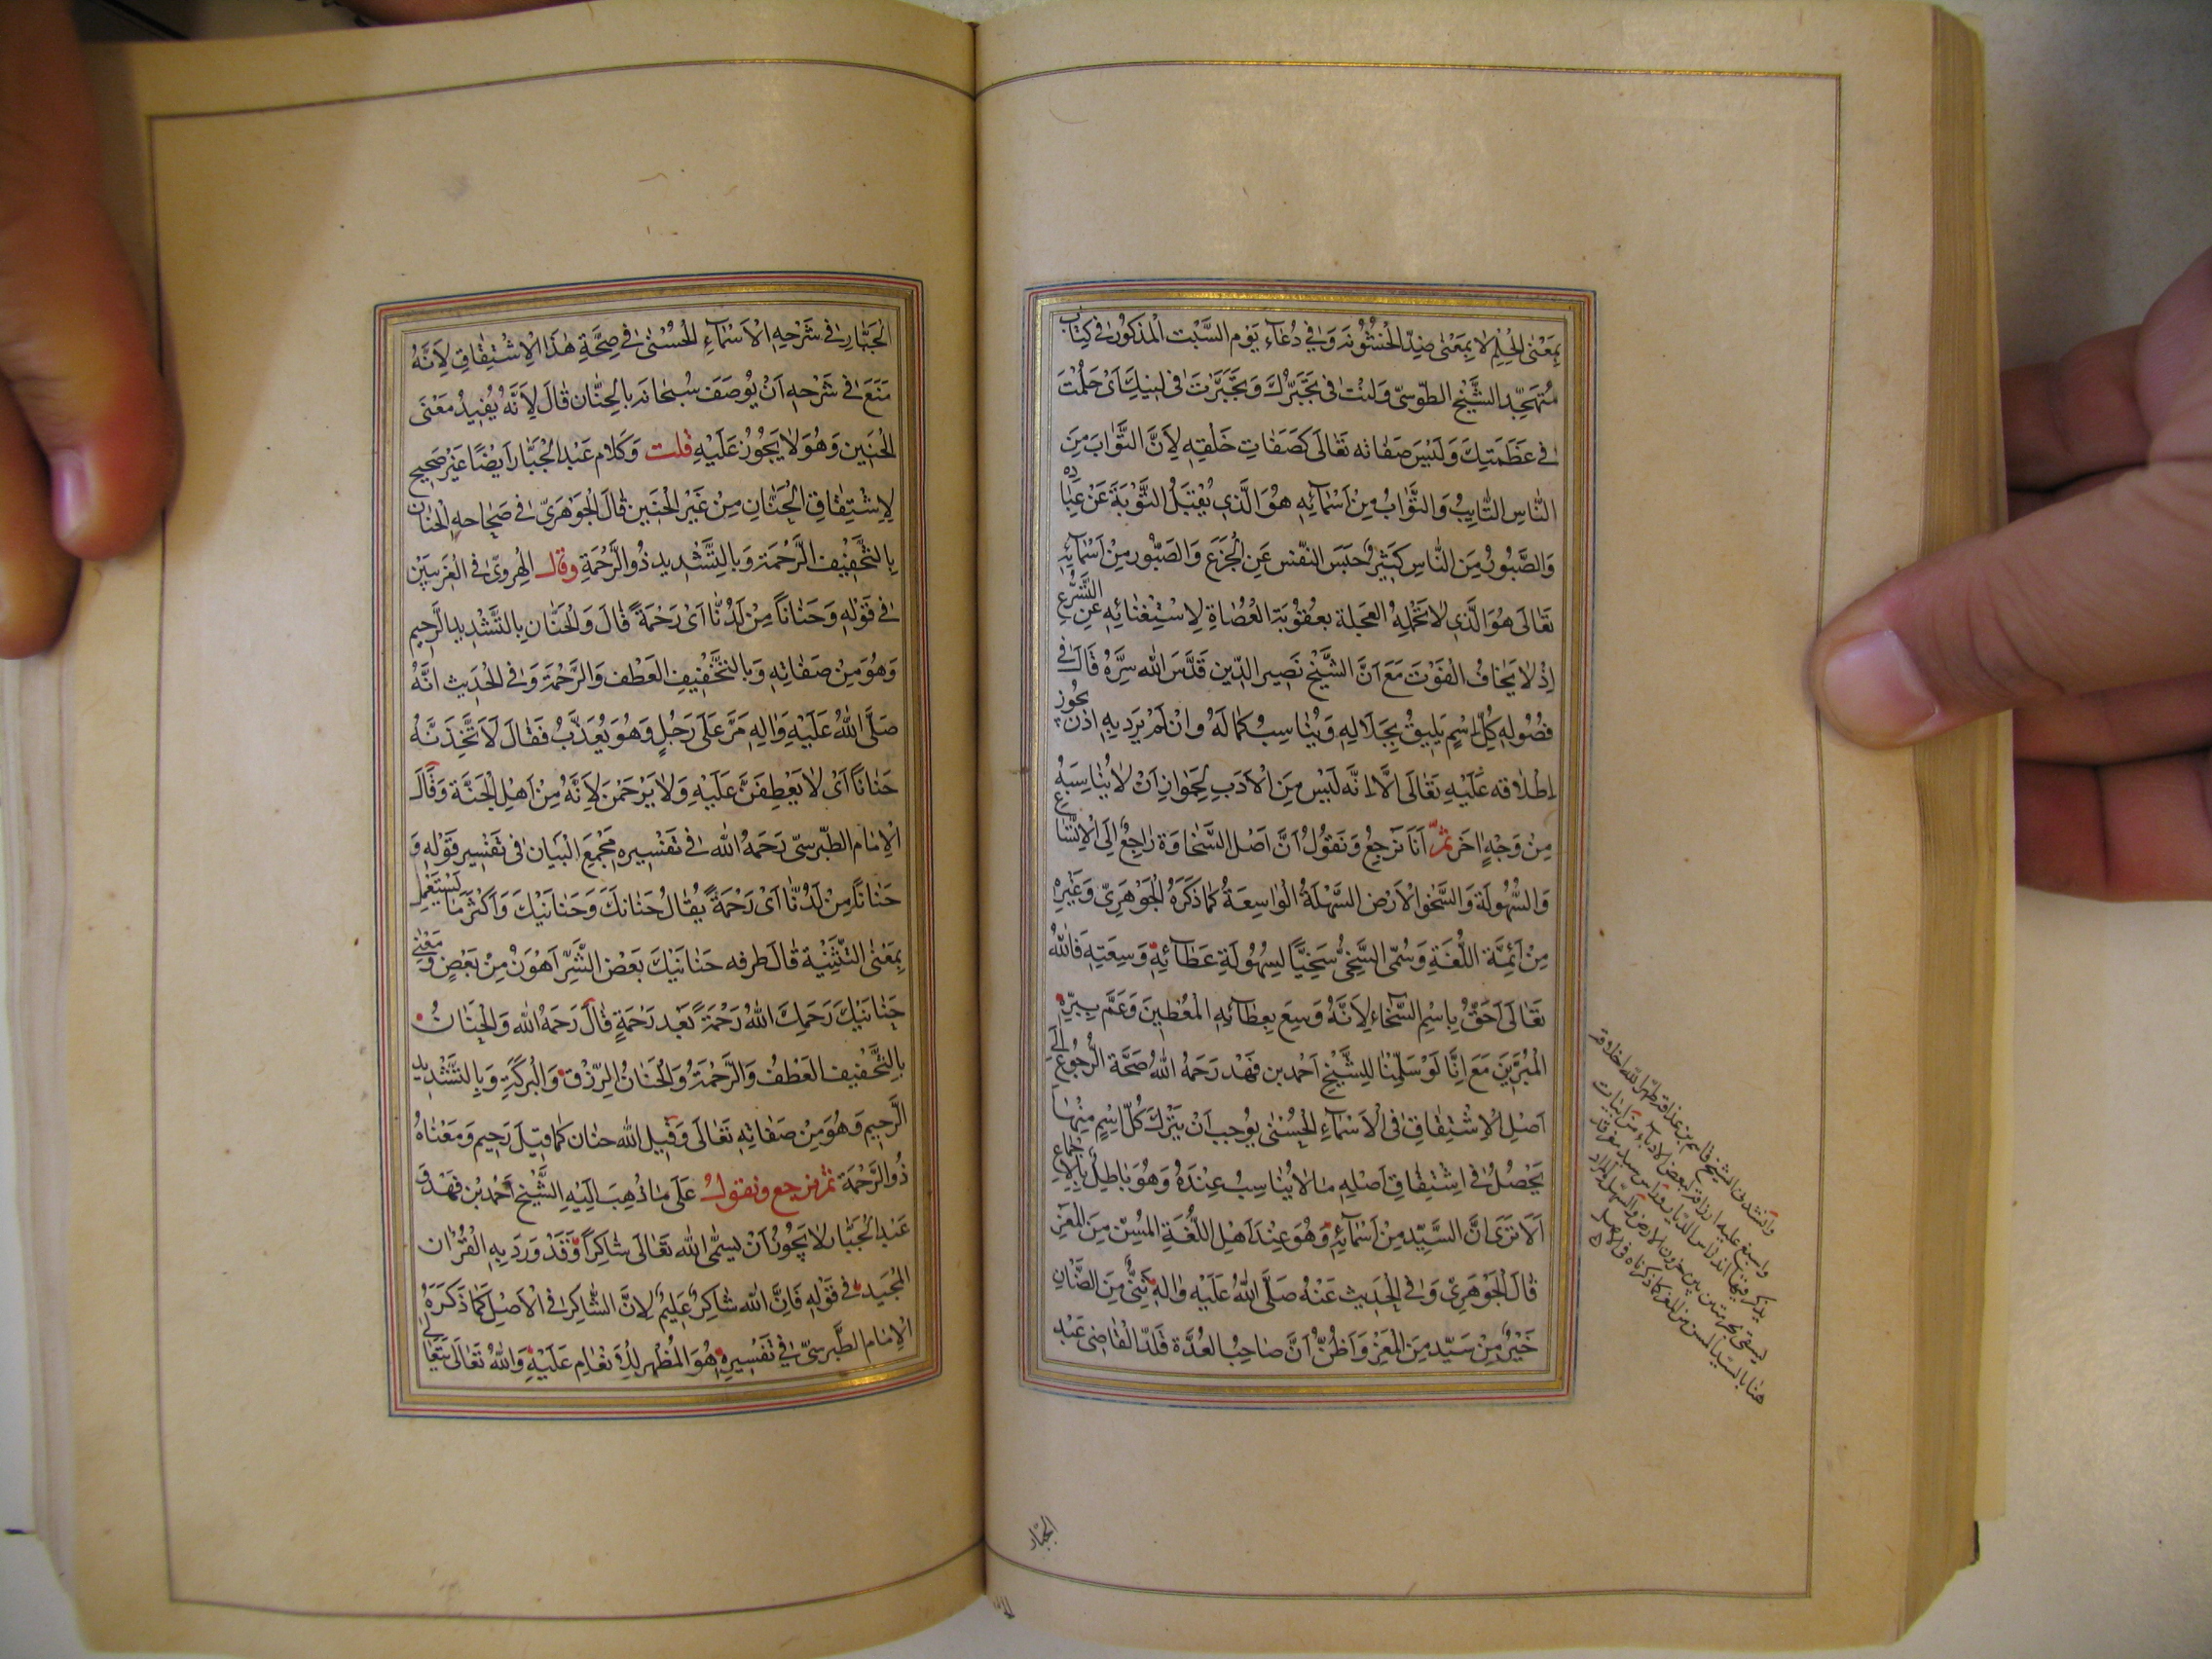 بِمَعْنَى الْحِلْمِ لَا بِمَعْنَى ضِدِّ الْخُشُونَة وَفِي دُعَاءِ يَوْمِ السَّبْتِ الْمَذْكُورِ فِي كِتَابِ
مُتَهَجِّدِ الشَّيْخِ الطُّوسِيّ وَلِنْتَ فِي تَجَبُّرِكَ وَتَجَبَّرْتَ فِي لِينِكَ أَيْ حَلُمْتَ
فِي عَظَمَتِكَ وَلَيْسَ صَفَاتُه تَعَالَى كَصَفَاتِ خَلْقِهِ لِأَنَّ التَّوَّابَ مِنَ
النَّاسِ التَّائِبُ وَالتَّوَّابُ مِنْ أَسْمَائِهِ هُوَ الَّذِي يَقْبَلُ التَّوْبَةَ عَنْ عِبَادِه
وَالصَّبُورُ مِنَ النَّاسِ كَثِيرُ حَبْسِ النَّفْسِ عَنِ الْجَزَعِ وَالصَّبُور مِنْ أَسْمَائِهِ
تَعَالَى هُوَ الَّذِي لَا تَحْمِلُهُ الْعَجَلَة بِعُقُوبَةِ الْعُصَاةِ لِاسْتِغْنَائِهِ عَنِ التَّسَرُّعِ
إِذْ لَا يَخَافُ الْفَوْتَ مَعَ أَنَّ الشَّيْخَ نَصِيرَ الدِّين قَدَّسَ الله سِرَّهُ قَالَ فِي
فُصُولِهِ كُلُّ اسْمٍ يَلِيقُ بِجَلَالِهِ وَيُنَاسِبُ كَمَالَهُ وَإِنْ لَمْ يَرِدْ بِهِ إِذْن يَجُوز
إِطْلَاقُه عَلَيْهِ تَعَالَى إِلَّا أَنَّه لَيْسَ مِنَ الْأَدَبِ لِجَوَازِ أَنْ لَا يُنَاسِبَهُ
مِنْ وَجْهٍ آخَر ثُمَّ أَنَا نَرْجِعُ وَنَقُولُ أَنَّ أَصْلَ السَّخَاوَة رَاجِعٌ إِلَى الْاتِّسَاعِ
وَالسُّهُولَةِ وَالسَّخْو الْأَرْضُ السَّهْلَةُ الْوَاسِعَةُ كَمَا ذَكَرَهُ الْجَوْهَرِيّ وَغَيْرِهِ
مِنْ أَئِمَّةِ اللُّغَةِ وَسُمِّيَ السَّخِيُّ سَخِيًّا لِسُهُولَةِ عَطَائِهِ وَسِعَتِهِ فَاللهُ
تَعَالَى أَحَقُّ بِاسْمِ السَّخَاءِ لِأَنَّهُ وَسِعَ بِعَطَائِهِ الْمُعْطِينَ وَعَمَّ بِبِرِّهِ
الْمُبِرِّينَ مَعَ أَنَّا لَوْ سَلَّمْنَا لِلشَّيْخِ أَحْمَد بن فَهْد رَحَمَهُ اللهُ صَحَّةَ الرُّجُوعِ إِلَى
أَصْلِ الْاشْتِقَاقِ فِي الْأَسْمَاءِ الْحُسْنَى يُوجِب أَنْ يَتْرُكَ كُلَّ اسْمٍ مِنْهَا
يَحْصُلُ فِي اشْتِقَاقِ أَصْلِهِ مَا لَا يُنَاسِبُ عِنْدَهُ وَهُوَ بَاطِلٌ بِالْإِجْمَاعِ
أَلَا تَرَى أَنَّ السَّيِّدَ مِنْ أَسْمَائِهِ وَهُوَ عِنْدَ أَهْلِ اللُّغَةِ الْمُسِنُّ مِنَ الْمَعْزِ
قَالَ الْجَوْهَرِيّ وَفِي الْحَدِيثِ عَنْهُ صَلَّى اللهُ عَلَيْهِ وَآلِهِ ثَنِيٌّ مِنَ الضَّأْنِ
خَيْرٌ مِنْ سَيِّدٍ مِنَ الْمَعْزِ وَأَظُنُّ أَنَّ صَاحِبَ الْعُدَّة قَلَّدَ الْقَاضِي عَبْدَ
الجبار
الْجَبَّارِ فِي شَرْحِهِ الْأَسْمَاءِ الْحُسْنَى فِي صِحَّةِ هَذَا الْاشْتِقَاقِ لِأَنَّهُ
مَنَعَ فِي شَرْحِهِ أَنْ يُوصَفَ سُبْحَانَه بِالْحَنَّان قَالَ لِأَنَّهُ يُفِيدُ مَعْنَى
الْحَنِين وَهُوَ لَا يَجُوزُ عَلَيْهِ قلت وَكَلَام عَبْد الْجَبَّار أَيْضًا غَيْر صَحِيح
لِاشْتِقَاقِ الْحَنَّانِ مِنْ غَيْرِ الْحَنِين قَالَ الْجَوْهَرِيّ فِي صَحَاحِهِ الْحَنَان
بِالتَّخْفِيفِ الرَّحْمَة وَبِالتَّشْدِيدِ ذُو الرَّحْمَةِ وقال الْهِرَوِيّ فِي الْغَرِيبَيْنِ
فِي قَوْلِهِ وَحَنَانًا مِنْ لَدُنَّا أَيْ رَحْمَةً قَالَ وَالْحَنَّان بِالتَّشْدِيدِ الرَّحِيم
وَهُوَ مِنْ صَفَاتِهِ وَبِالتَّخْفِيفِ الْعَطْف وَالرَّحْمَة وَفِي الْحَدِيثِ أَنَّهُ
صَلَّى اللهُ عَلَيْهِ وَآلِهِ مَرَّ عَلَى رَجُلٍ وَهُوَ يُعَذَّبُ فَقَالَ لَأَتَّخِذَنَّهُ
حَنَانًا أَيْ لَا يَعْطِفَنَّ عَلَيْهِ وَلَا يَرْحَمْنَ لِأَنَّهُ مِنْ أَهْلِ الْجَنَّة وَقَالَ
الْإِمَام الطَّبَرْسِيّ رَحَمَهُ الله فِي تَفْسِيرِهِ مَجْمَعِ الْبَيَان فِي تَفْسِيرِ قَوْلِهِ وَ
حَنَانًا مِنْ لَدُنَّا أَيْ رَحْمَةً يُقَالُ حَنَانَكَ وَحَنَانَيْكَ وَأَكْثَرُ مَا يُسْتَعْمَل
بِمَعْنَى التَّثْنِيَة قَالَ طرفه حَنَانَيْكَ بَعْضُ الشَّرِّ أَهْوَنُ مِنْ بَعْضٍ وَمَعْنَى
حَنَانَيْكَ رَحَمِكَ اللهُ رَحْمَةً بَعْدَ رَحْمَةٍ قَالَ رَحَمَهُ الله وَالْحَنَانُ
بِالتَّخْفِيفِ الْعَطْفُ وَالرَّحْمَةُ وَالْحَنَانُ الرِّزْق وَالْبَرَكَة وَبِالتَّشْدِيد
الرَّحِيم وَهُوَ مِنْ صَفَاتِهِ تَعَالَى وَقِيلَ الله حنان كَمَا قِيلَ رَحِيم وَمَعْنَاهُ
ذُو الرَّحْمَة ثم نرجع ونقول عَلَى مَا ذَهَبَ إِلَيْهِ الشَّيْخ أَحْمَد بْن فَهْد وَ
عَبْد الْجَبَّار لَا يَجُوزُ أَنْ يُسَمَّى الله تَعَالَى شَاكِرًا وَقَدْ وَرَدَ بِهِ الْقُرْآن
الْمَجِيد فِي قَوْلِهِ فَإِنَّ الله شَاكِرٌ عَلِيمٌ لِأَنَّ الشَّاكِرَ فِي الْأَصْلِ كَمَا ذَكَرَهُ
الْإِمَام الطَّبَرْسِيّ فِي تَفْسِيرِهِ هُوَ الْمُظْهِر لِلْإِنْعَامِ عَلَيْهِ وَاللهُ تَعَالَى يَتَعَالَى